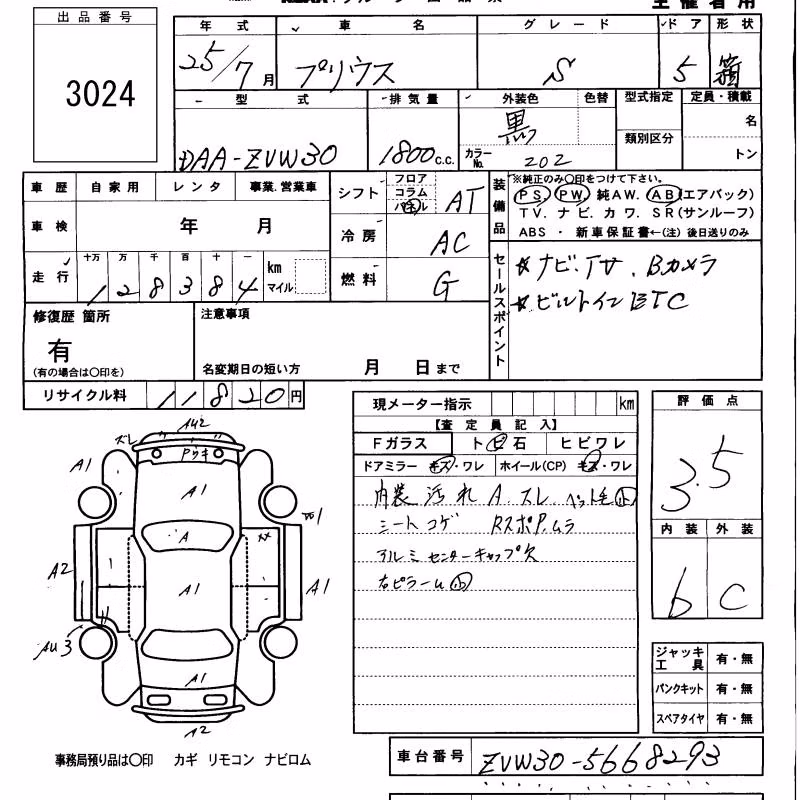 出品番号
3024
年式 車名 グレード ドア 形状
25/7月 プリウス S 5 箱
型式 排気量 外装色 色替 型式指定 定員・積載
DAA-ZVW30 1800 c.c. 黒 類別区分 名
カラーNo. 202 トン
車歴 自家用 レンタ 事業.営業車
車検 年 月
走行 十万 万 千 百 十 一
128384 km マイル
シフト フロア コラム パネル AT
冷房 AC
燃料 G
装備品
※純正のみ〇印をつけて下さい。
PS. PW. 純AW. AB(エアバッグ)
TV. ナビ. カワ. SR(サンルーフ)
ABS ・ 新車保証書←(注) 後日送りのみ
セールスポイント
☆ナビ.TV.Bカメラ
☆ビルトインETC
修復歴 箇所
有
(有の場合は〇印を)
注意事項
名変期日の短い方 月 日まで
リサイクル料 11820円
現メーター指示 km
【査定員記入】
Fガラス トビ石 ヒビワレ
ドアミラー キズ・ワレ ホイール(CP) キズ・ワレ
内装汚れ A.スレ ペット毛
シートコゲ RスポP.ムラ
アルミセンターキャップ欠
右ピラーム
評価点
3.5
内装 外装
b C
ジャッキ工具 有・無
パンクキット 有・無
スペアタイヤ 有・無
AU2
ズレ
Pウキ
A1
A1
A
A2
A1
A1
AU3
A1
A2
事務局預り品は〇印 カギ リモコン ナビロム
車台番号 ZVW30-5668293